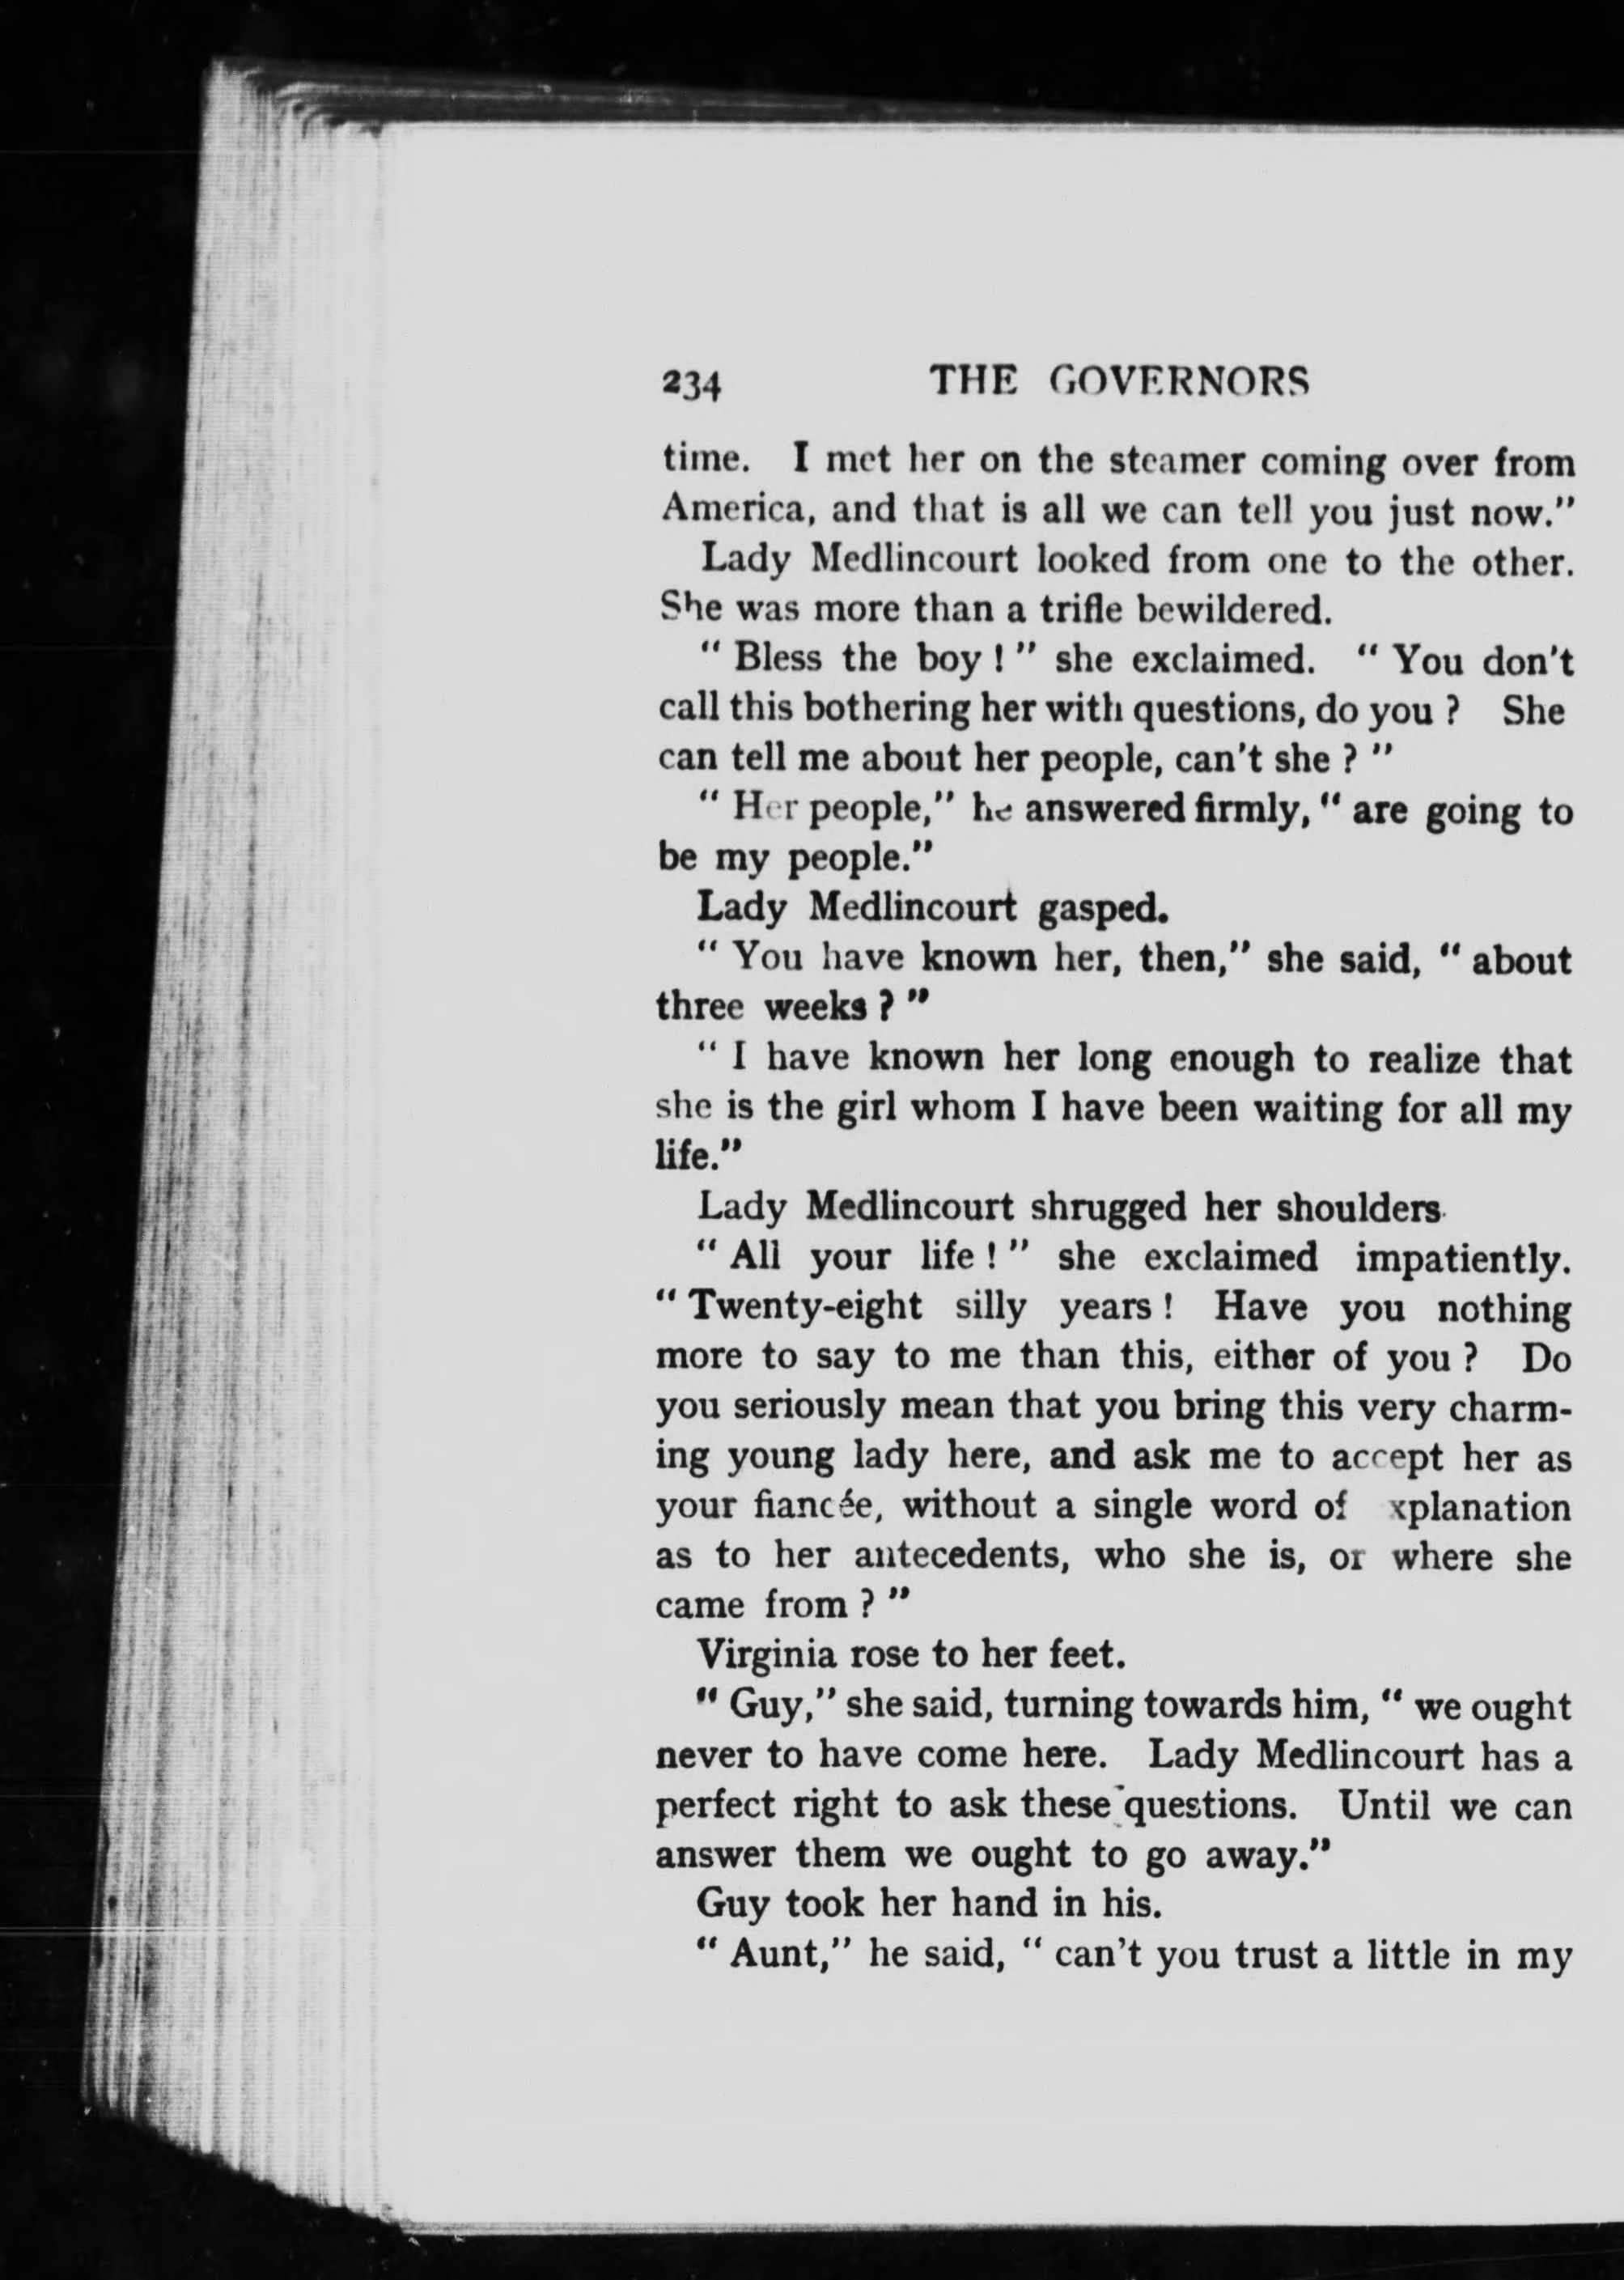 234 THE GOVERNORS
time. I met her on the steamer coming over from
America, and that is all we can tell you just now."
Lady Medlincourt looked from one to the other.
She was more than a trifle bewildered.
" Bless the boy ! " she exclaimed. " You don't
call this bothering her with questions, do you ? She
can tell me about her people, can't she ? "
" Her people," he answered firmly, " are going to
be my people."
Lady Medlincourt gasped.
" You have known her, then," she said, " about
three weeks ? "
" I have known her long enough to realize that
she is the girl whom I have been waiting for all my
life."
Lady Medlincourt shrugged her shoulders.
" All your life ! " she exclaimed impatiently.
" Twenty-eight silly years ! Have you nothing
more to say to me than this, either of you ? Do
you seriously mean that you bring this very charm-
ing young lady here, and ask me to accept her as
your fiancée, without a single word of xplanation
as to her antecedents, who she is, or where she
came from ? "
Virginia rose to her feet.
" Guy," she said, turning towards him, " we ought
never to have come here. Lady Medlincourt has a
perfect right to ask these questions. Until we can
answer them we ought to go away."
Guy took her hand in his.
" Aunt," he said, " can't you trust a little in my